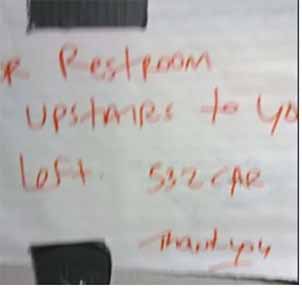 R Restroom
upstairs to yo
left. 532 CAR
Thank you